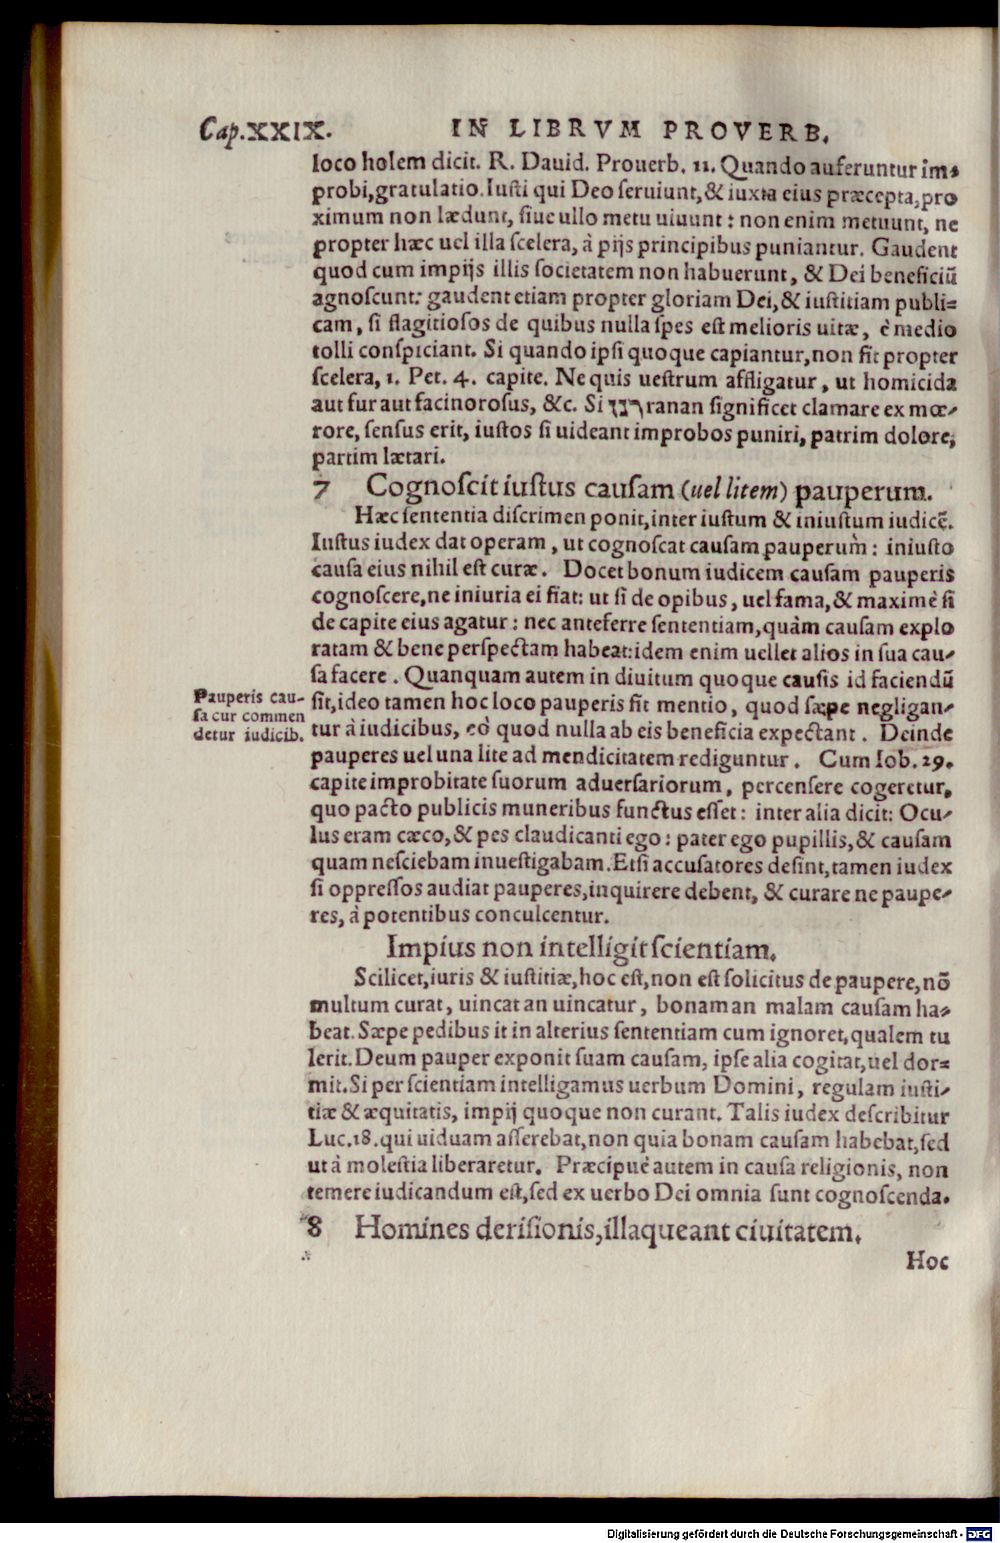 Cap.XXIX. IN LIBRVM PROVERB.
loco holem dicit. R. Dauid. Prouerb. 11. Quando auferuntur im-
probi, gratulatio. Iusti qui Deo seruiunt, & iuxta eius præcepta, pro
ximum non lædunt, siue ullo metu uiuunt: non enim metuunt, ne
propter hæc uel illa scelera, à pijs principibus puniantur. Gaudent
quod cum impijs illis societatem non habuerunt, & Dei beneficiũ
agnoscunt: gaudent etiam propter gloriam Dei, & iustitiam publi=
cam, si flagitiosos de quibus nulla spes est melioris uitæ, è medio
tolli conspiciant. Si quando ipsi quoque capiantur, non fit propter
scelera, 1. Pet. 4. capite. Ne quis uestrum affligatur, ut homicida
aut fur aut facinorosus, &c. Si רנן ranan significet clamare ex mœ-
rore, sensus erit, iustos si uideant improbos puniri, patrim dolore,
partim lætari.
7 Cognoscit iustus causam (uel litem) pauperum.
Hæc sententia discrimen ponit, inter iustum & iniustum iudicẽ.
Iustus iudex dat operam, ut cognoscat causam pauperum: iniusto
causa eius nihil est curæ. Docet bonum iudicem causam pauperis
cognoscere, ne iniuria ei fiat: ut si de opibus, uel fama, & maximè si
de capite eius agatur: nec anteferre sententiam, quàm causam explo
ratam & bene perspectam habeat: idem enim uellet alios in sua cau-
sa facere. Quanquam autem in diuitum quoque causis id faciendũ
Pauperis cau-
sa cur commen
detur iudicib.
sit, ideo tamen hoc loco pauperis fit mentio, quod sæpe negligan-
tur à iudicibus, eò quod nulla ab eis beneficia expectant. Deinde
pauperes uel una lite ad mendicitatem rediguntur. Cum Iob. 29.
capite improbitate suorum aduersariorum, percensere cogeretur,
quo pacto publicis muneribus functus esset: inter alia dicit: Ocu-
lus eram cæco, & pes claudicanti ego: pater ego pupillis, & causam
quam nesciebam inuestigabam. Etsi accusatores desint, tamen iudex
si oppressos audiat pauperes, inquirere debent, & curare ne paupe-
res, à potentibus conculcentur.
Impius non intelligit scientiam.
Scilicet, iuris & iustitiæ, hoc est, non est solicitus de paupere, nõ
multum curat, uincat an uincatur, bonam an malam causam ha-
beat. Sæpe pedibus it in alterius sententiam cum ignoret, qualem tu
lerit. Deum pauper exponit suam causam, ipse alia cogitat, uel dor=
mit. Si per scientiam intelligamus uerbum Domini, regulam iusti-
tiæ & æquitatis, impij quoque non curant. Talis iudex describitur
Luc. 18. qui uiduam asserebat, non quia bonam causam habebat, sed
ut à molestia liberaretur. Præcipuè autem in causa religionis, non
temere iudicandum est, sed ex uerbo Dei omnia sunt cognoscenda.
8 Homines derisionis, illaqueant ciuitatem.
Hoc
Digitalisierung gefördert durch die Deutsche Forschungsgemeinschaft - DFG